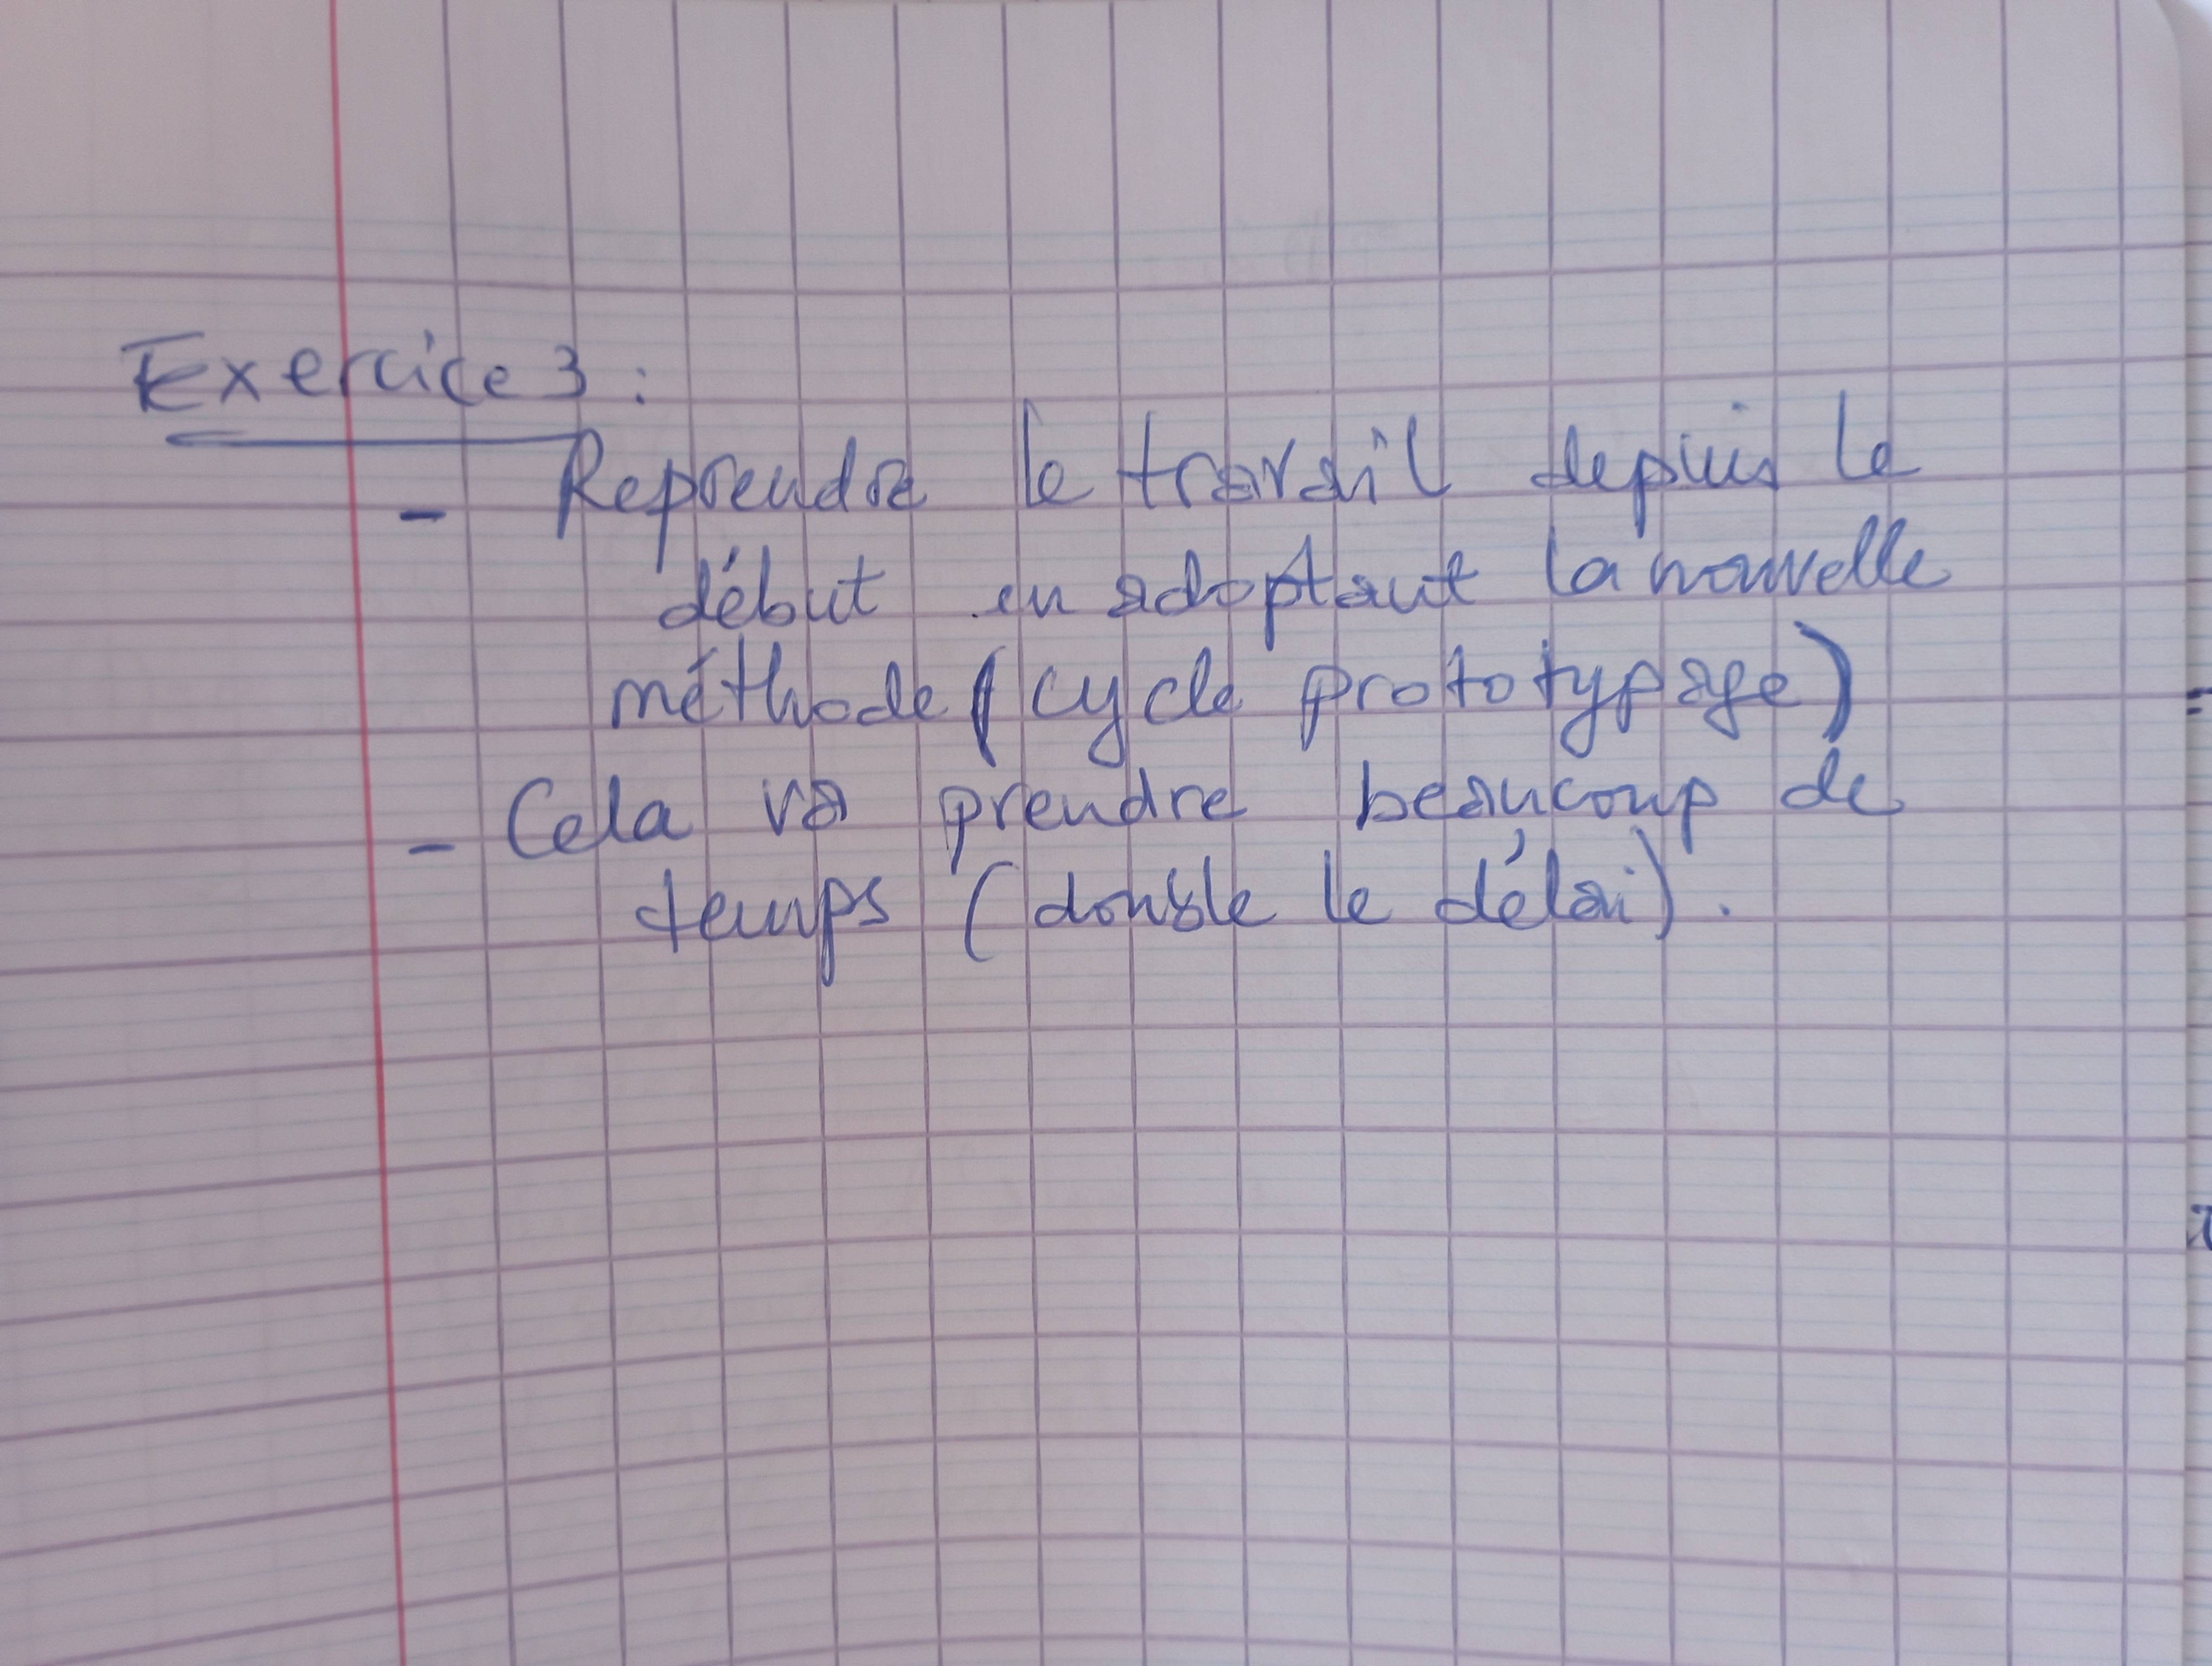 Exercice 3 :
- Reprendre le travail depuis le
début en adoptant la nouvelle
méthode (cycle prototypage)
- Cela va prendre beaucoup de
temps (double le délai).